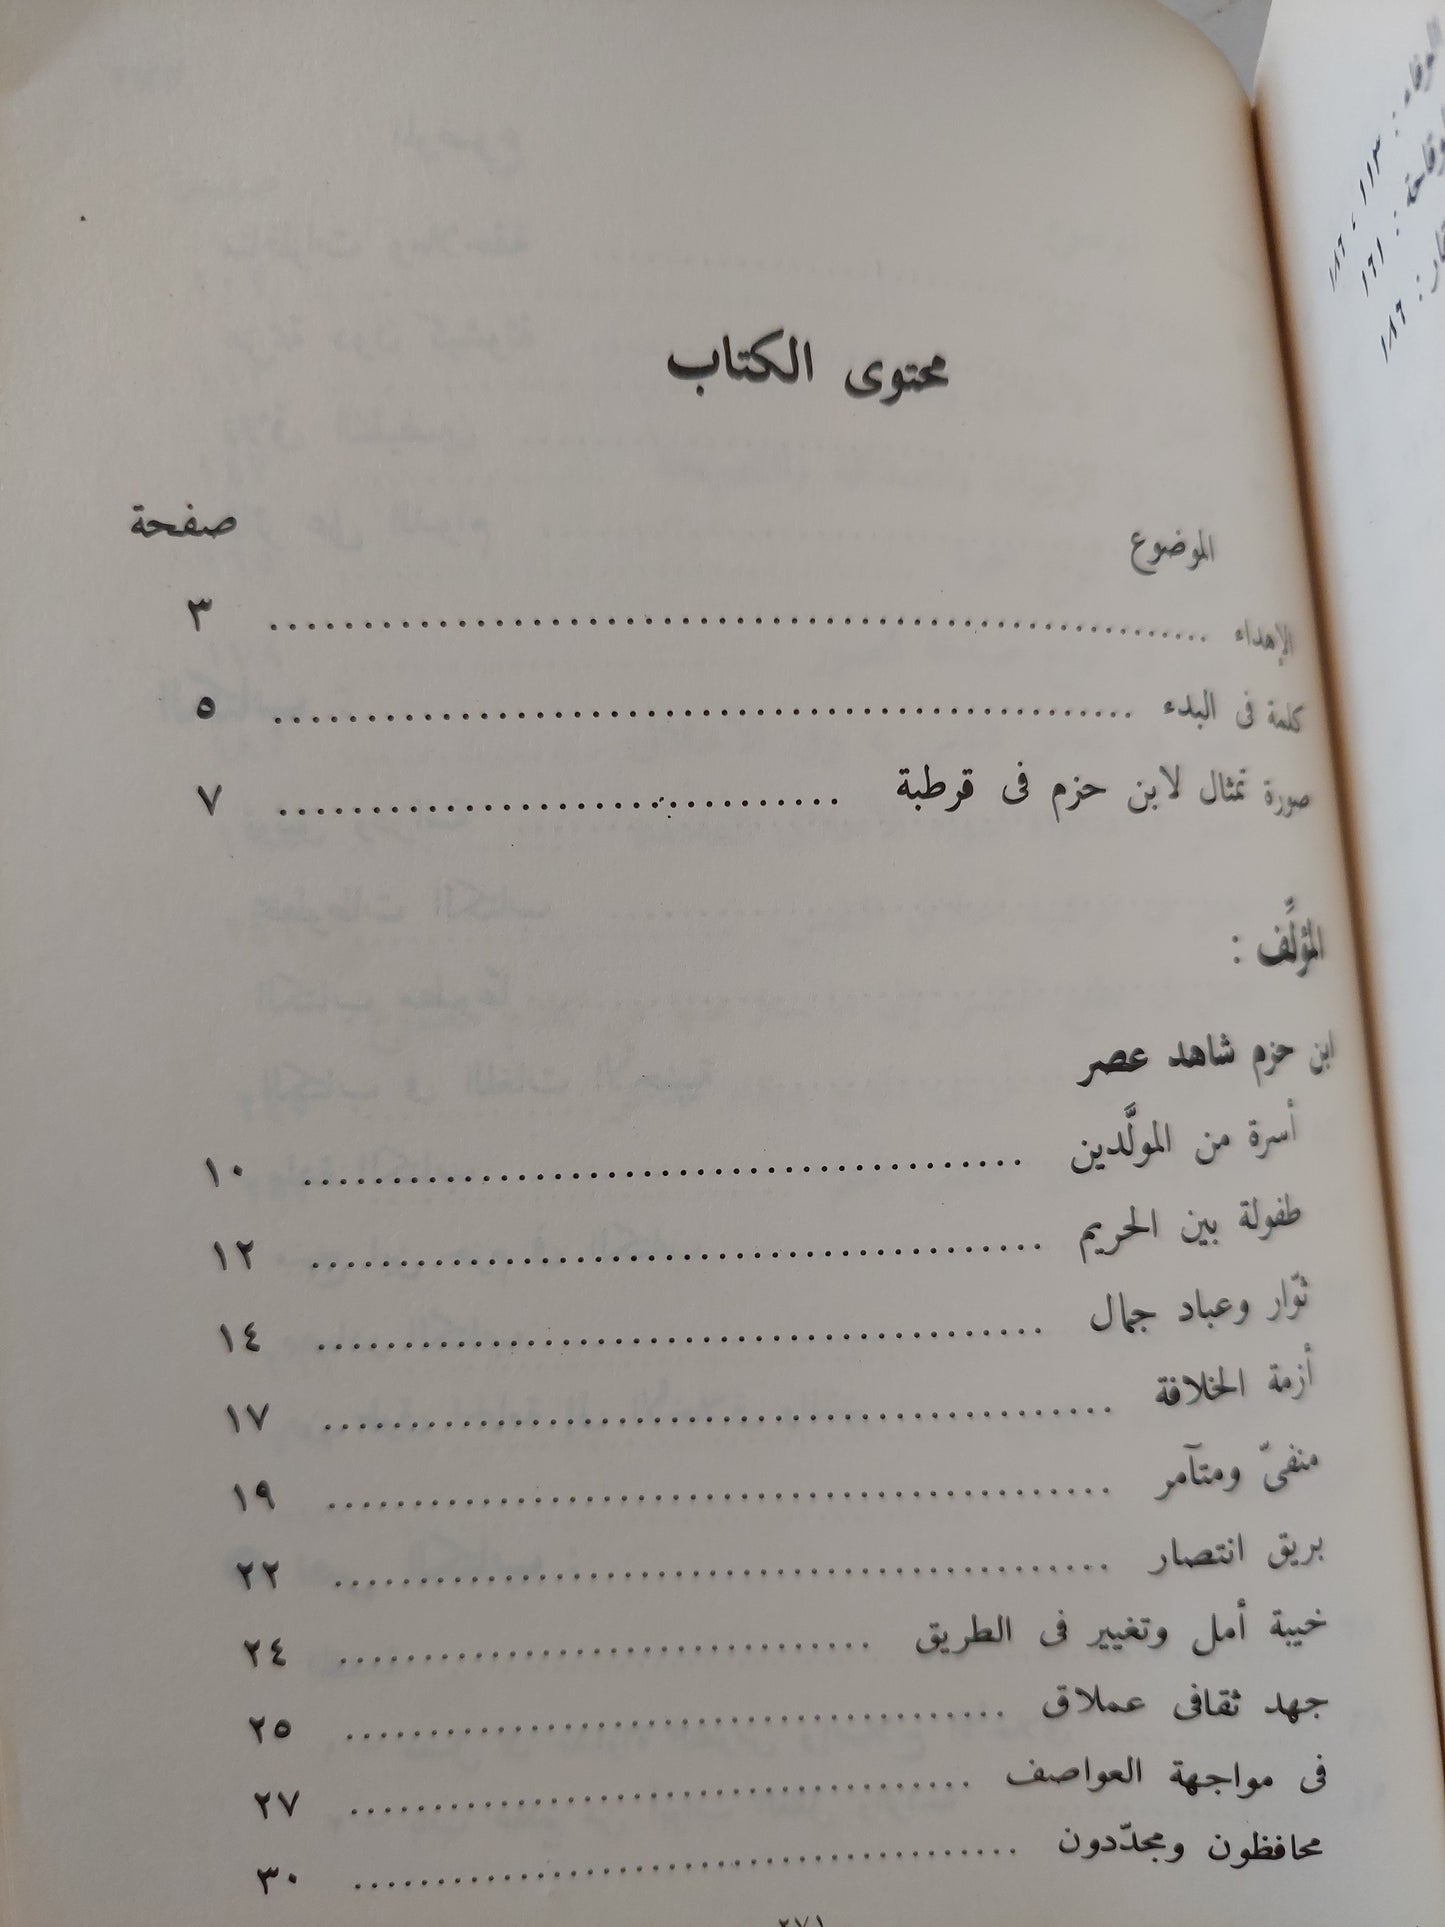 محتوى الكتاب
الموضوع صفحة
الإهداء ........ ٣
كلمة فى البدء ........ ٥
صورة تمثال لابن حزم فى قرطبة ........ ٧
المؤلِّف :
ابن حزم شاهد عصر
أسرة من المولَّدين ........ ١٠
طفولة بين الحريم ........ ١٢
ثوّار وعباد جمال ........ ١٤
أزمة الخلافة ........ ١٧
منفىّ ومتآمر ........ ١٩
بريق انتصار ........ ٢٢
خيبة أمل وتغيير فى الطريق ........ ٢٤
جهد ثقافى عملاق ........ ٢٥
فى مواجهة العواصف ........ ٢٧
محافظون ومجدّدون ........ ٣٠
٢٧١
الوفاء : ١١٣ ، ١٨٦
: ١٦١
: ١٨٦